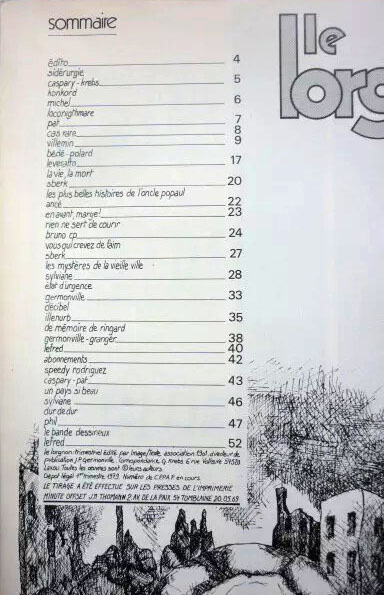 sommaire
le
lorg
édito 4
sidérurgie
caspary-krebs 5
konkord
michel 6
loconightmare
pat 7
cas rare 8
villemin 9
bédé-polard
levesatto 17
la vie, la mort
sberk 20
les plus belles histoires de l'oncle popaul
ancé 22
en avant, marge! 23
rien ne sert de courir
bruno cp 24
vous qui crevez de faim
sberk 27
les mystères de la vieille ville
sylviane 28
état d'urgence
germonville 33
décibel
illenurb 35
de mémoire de ringard
germonville-granger 38
lefred 40
abonnements 42
speedy rodriguez
caspary-pat 43
un pays si beau
sylviane 46
dur de dur
phil 47
le bande dessineux
lefred 52
le lorgnon: trimestriel édité par Image/Texte, association 1901. directeur de
publication J.P. Germonville. Correspondance, G. Krebs 6 rue Voltaire 54520
Laxou. Toutes les œuvres sont © leurs auteurs.
Dépôt légal 1er trimestre 1979. Numéro de C.P.P.A.P. en cours
LE TIRAGE A ÉTÉ EFFECTUÉ SUR LES PRESSES DE L'IMPRIMERIE
MINUTE OFFSET J.M THOMANN 2 AV. DE LA PAIX 54 TOMBLAINE 20.03.69